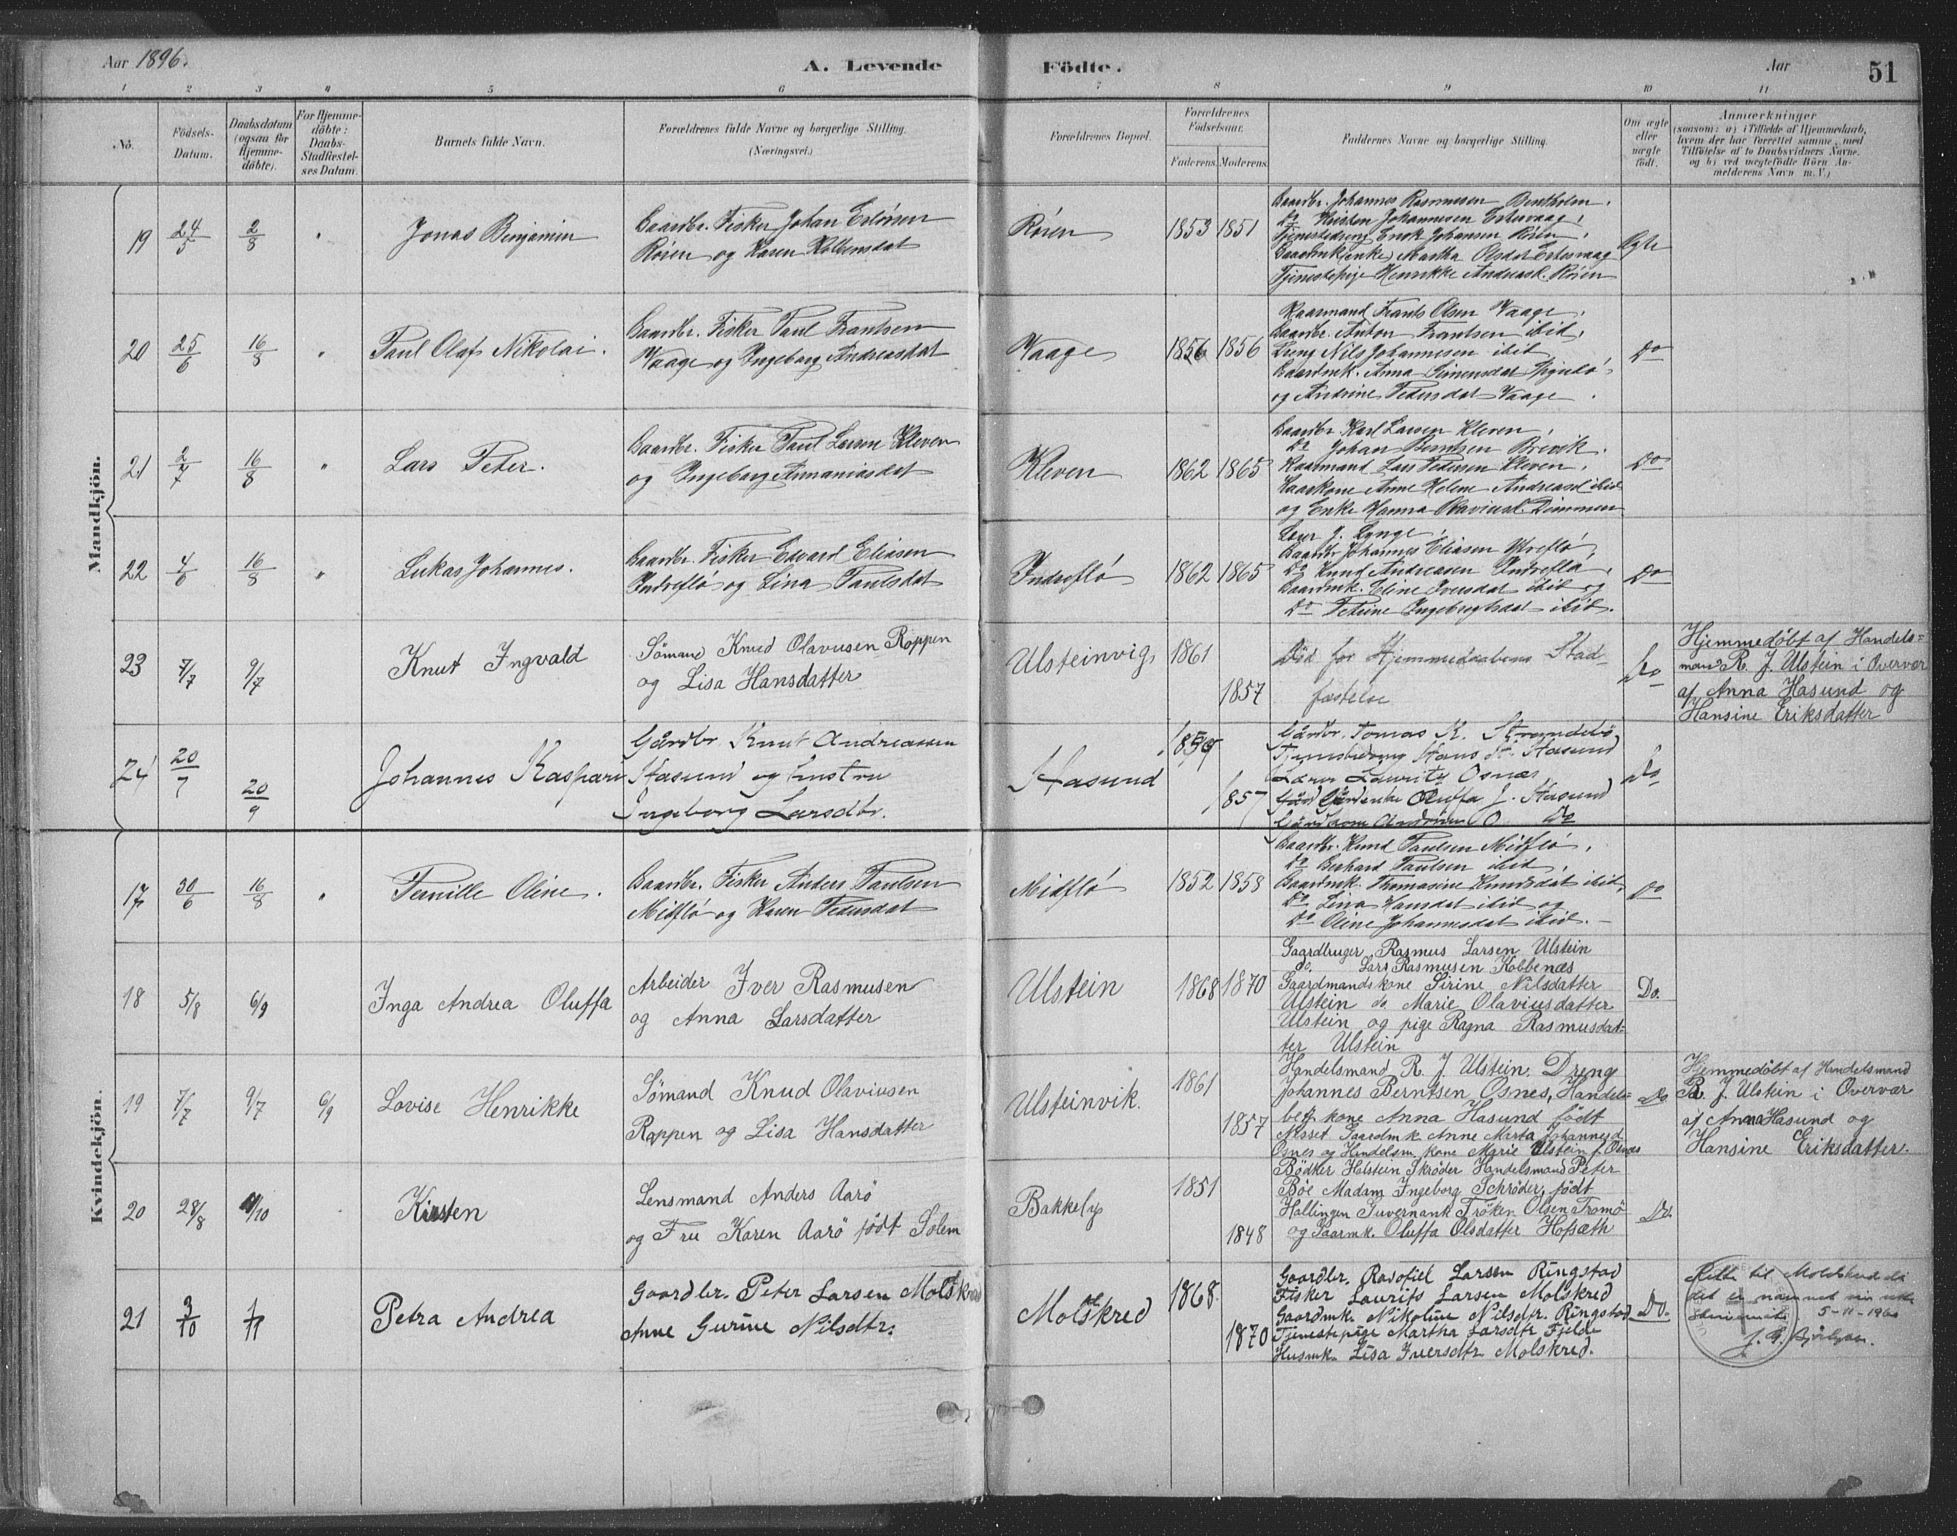 Aar 1896.
A. Levende
Födte.
Aar
51
1 2 3 4 5 6 7 8 9 10 11
No.
Födsels-
Datum.
Daabsdatum
(ogsaa för
Hjemme-
döbte).
For Hjemme-
döbte:
Daabs-
Stadfæstel-
ses Datum.
Barnets fulde Navn.
Forældrenes fulde Navne og borgerlige Stilling.
(Næringsvei.)
Forældrenes Bopæl.
Forældrenes
Födselsaar.
Faderens. Moderens.
Faddernes Navne og borgerlige Stilling.
Om ægte
eller
uægte
födt.
Anmærkninger
(saasom: a) i Tilfælde af Hjemmedaab,
hvem der har forrettet samme, med
Tilföielse af to Daabsvidners Navne,
og b) ved uægtefödte Börn An-
melderens Navn m. V.)
Mandkjön.
19 24/5 2/8 " Jonas Benjamin
Gaardbr. Fisker Johan
Rören og Karen
Røren 1853 1851
Gaardbr. Johannes Rasmussen
Do Johannesen
Tjenestedreng Enok Johansen Røren,
Martha Olsdat
Tjenestepige Henrikke Andreasd. Røren
Ægte
20 25/6 16/8 " Paul Olaf Nikolai.
Gaardbr. Fisker Paul Frantsen
Vaage og Ingeborg Andreasdat
Vaage 1856 1856
Kaarmand Frants Olsen Vaage,
Gaardbr. Anton Frantsen ibid,
Dreng Nils Johannesen ibid
Gaardmk. Anna Simonsdat
og Andrine Pedersdat Vaage.
Do
21 2/7 16/8 " Lars Peter.
Gaardbr. Fisker Paul Larsen Kleven
og Ingeborg Ananiasdat
Kleven 1862 1865
Gaardbr. Karl Larsen Kleven,
Do Johan Berntsen Brevik.
Kaarmand Lars Pedersen Kleven,
Kaarkone Anne Helene Andreasd ibid
og Enke Hanna Olaviusd. Dimmen
Do
22 4/6 16/8 " Lukas Johannes.
Gaardbr. Fisker Edvard Eliasen
Indreflø og Lina Paulsdat
Indreflø 1862 1865
J. Lynge,
Gaardbr Johannes Eliasen
Do Knud Andreasen Indreflø,
Gaardmk. Eline Iversdat ibid og
Do Petrine Ingebrigtsdat ibid.
Do
23 7/7 9/7 Knut Ingvald
Sømand Knud Olavusen Roppen
og Lisa Hansdatter
Ulsteinvig, 1861
1857
Død før Hjemmedaabens Stad-
fæstelse
Do
Hjemmedøbt af Handels=
mand R. J. Ulstein i Overvær
af Anna Hasund og
Hansine Eriksdatter
24 20/7 20/9 Johannes Kaspar
Gårdbr. Knut Andreassen
Hasund og hustru
Ingeborg Larsdtr.
Hasund
1857
Gårdbr. Tomas K.
Tjenestedreng Hans A. Hasund
Lærer Laurits Osnæs,
Gårdenke Oluffa J. Hasund
Do
Do
Kvindekjön.
17 30/6 16/8 " Pernille Oline.
Gaardbr. Fisker Anders Paulsen
Midflø og Karen Pedersdat
Midflø 1852 1858
Gaardbr. Knud Paulsen Midflø,
Do Berhard Paulsen ibid,
Gaardmk. Thomasine Knudsdat ibid,
Do Lina Hansdat ibid og
Do Oline Johannesdat ibid.
Do
18 5/8 6/9 Inga Andrea Oluffa
Arbeider Iver Rasmusen
og Anna Larsdatter
Ulstein 1868 1870
Gaardbruger Rasmus Larsen Ulstein
do. Lars Rasmusen Kobbenæs
Gaardmandskone Sirine Nilsdatter
Ulstein do Marie Olaviusdatter
Ulstein og pige Ragna Rasmusdat-
ter Ulstein
Do.
19 7/7 9/7 6/9 Lovise Henrikke
Sømand Knud Olaviusen
Roppen og Lisa Hansdatter
Ulsteinvik. 1861
1857
Handelsmand R. J. Ulstein. Dreng
Johannes Berntsen Osnes, Handels-
betj. kone Anna Hasund født
Gaardmk Anne Marta Johannesd
Osnes og Handelsm. kone Marie Ulstein f. Osnes
Do
Hjemmedøbt af Handelsmand
R. J. Ulstein i Overvær
af Anna Hasund og
Hansine Eriksdatter.
20 28/8 4/10 Kirsten
Lensmand Anders Aarö
og Fru Karen Aarö født Solem
Bakkely 1851
1848
Bödker Holstein Skröder Handelsmand Peter
Böe Madam Ingeborg Schröder, født
Hallingen Fröken Olsen Tromö
og Gaarmk. Oluffa Olsdatter Hofsæth
Do.
21 3/10 1/11 Petra Andrea
Gaardbr. Peter Larsen Molskred
Anne Gurine Nilsdtr.
Molskred 1868
1870
Gaardbr. Larsen Ringstad
Fisker Laurits Larsen Molskred
Gaardmk. Nikoline Nilsdtr. Ringstad
Tjenestepige Martha Larsdtr Fjelde
Husmk. Lisa Iversdtr Molskred.
Do.
til Moldskred da
det er
5-11-1960